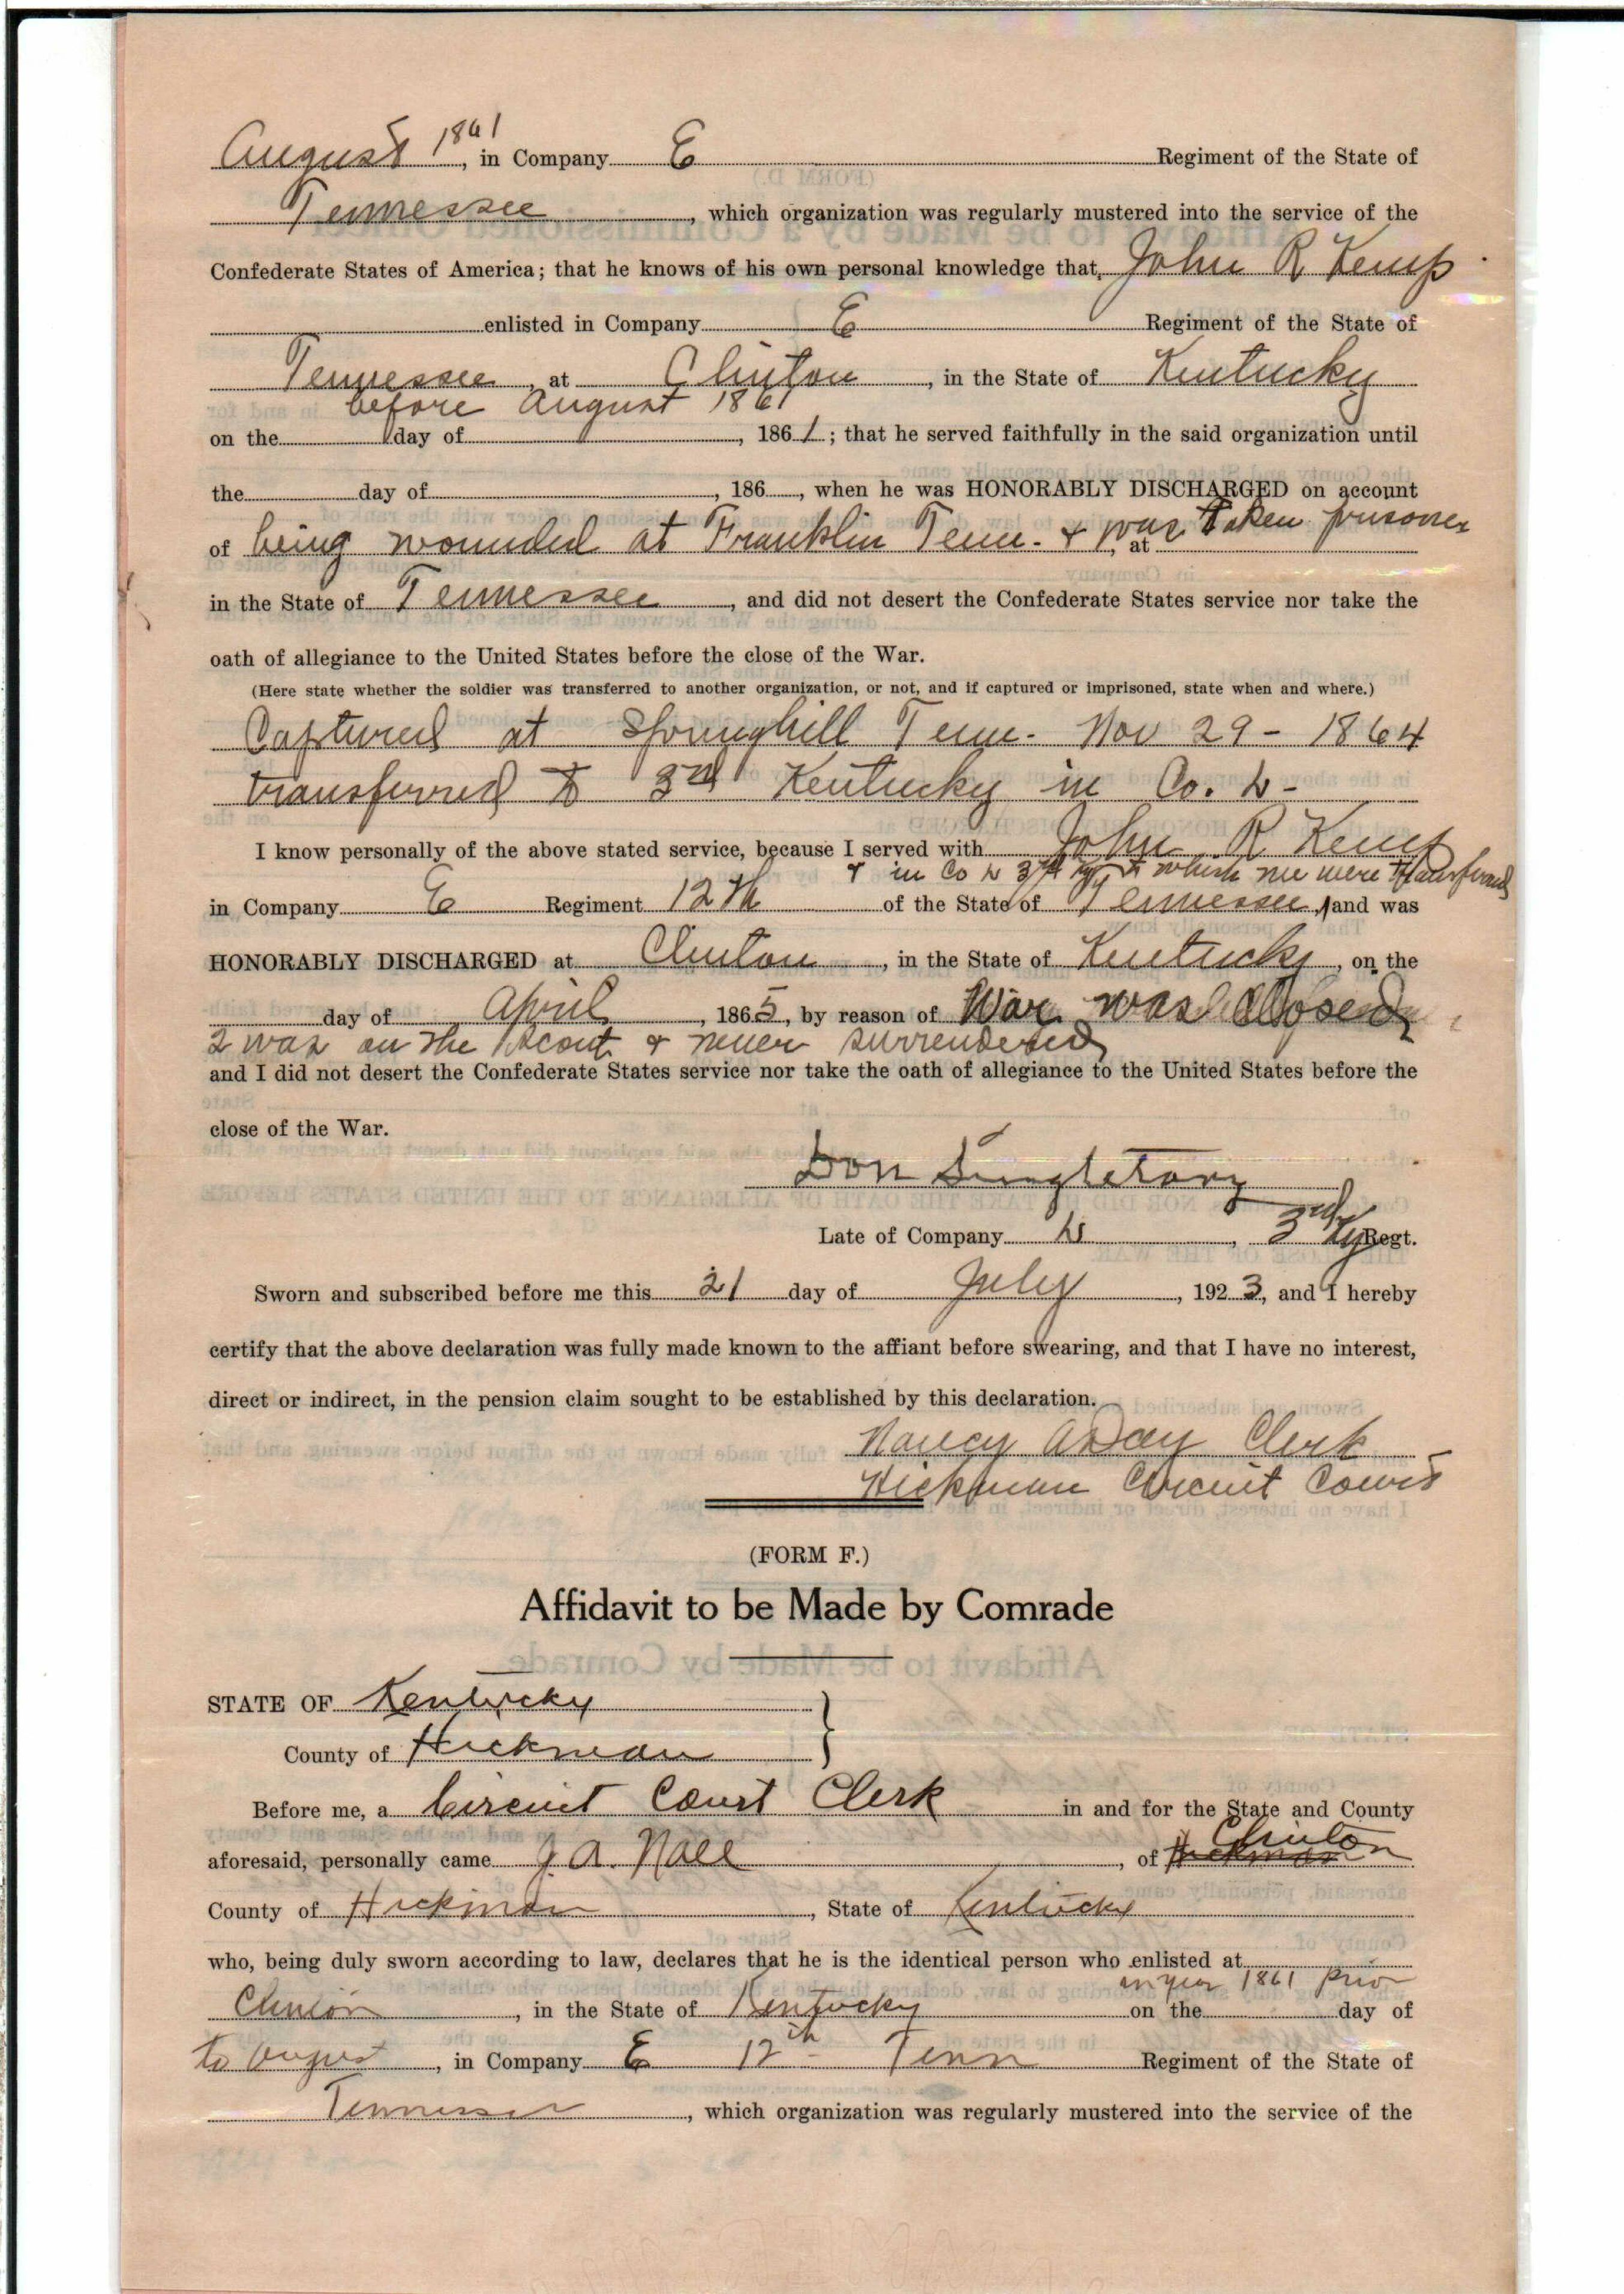 August 1861, in Company E Regiment of the State of
Tennessee, which organization was regularly mustered into the service of the
Confederate States of America; that he knows of his own personal knowledge that, John R Kemp
enlisted in Company E Regiment of the State of
Tennessee, at Clinton, in the State of Kentucky
before august 1861
on the day of , 1861; that he served faithfully in the said organization until
the day of , 186 , when he was HONORABLY DISCHARGED on account
of being wounded at Franklin Tenn. & was taken prisoner, at
in the State of Tennessee, and did not desert the Confederate States service nor take the
oath of allegiance to the United States before the close of the War.
(Here state whether the soldier was transferred to another organization, or not, and if captured or imprisoned, state when and where.)
Captured at Springhill Tenn. Nov 29 - 1864
transferred to 3rd Kentucky in Co. L -
I know personally of the above stated service, because I served with John R Kemp
& in Co L 3rd Ky to which we were transferred
in Company E Regiment 12th of the State of Tennessee, and was
HONORABLY DISCHARGED at Clinton, in the State of Kentucky, on the
day of April, 1865, by reason of War was closed
I was on the scout & never surrendered
and I did not desert the Confederate States service nor take the oath of allegiance to the United States before the
close of the War.
Don Singletary
Late of Company L, 3rd Ky Regt.
Sworn and subscribed before me this 21 day of July, 1923, and I hereby
certify that the above declaration was fully made known to the affiant before swearing, and that I have no interest,
direct or indirect, in the pension claim sought to be established by this declaration.
Nancy A Day Clerk
Hickman Circuit Court
(FORM F.)
Affidavit to be Made by Comrade
STATE OF Kentucky
County of Hickman
Before me, a Circuit Court Clerk in and for the State and County
Clinton
aforesaid, personally came J. A. Nall, of Hickman
County of Hickman, State of Kentucky
who, being duly sworn according to law, declares that he is the identical person who enlisted at
in year 1861 prior
Clinton, in the State of Kentucky on the day of
to August, in Company E 12th Tenn Regiment of the State of
Tennessee, which organization was regularly mustered into the service of the